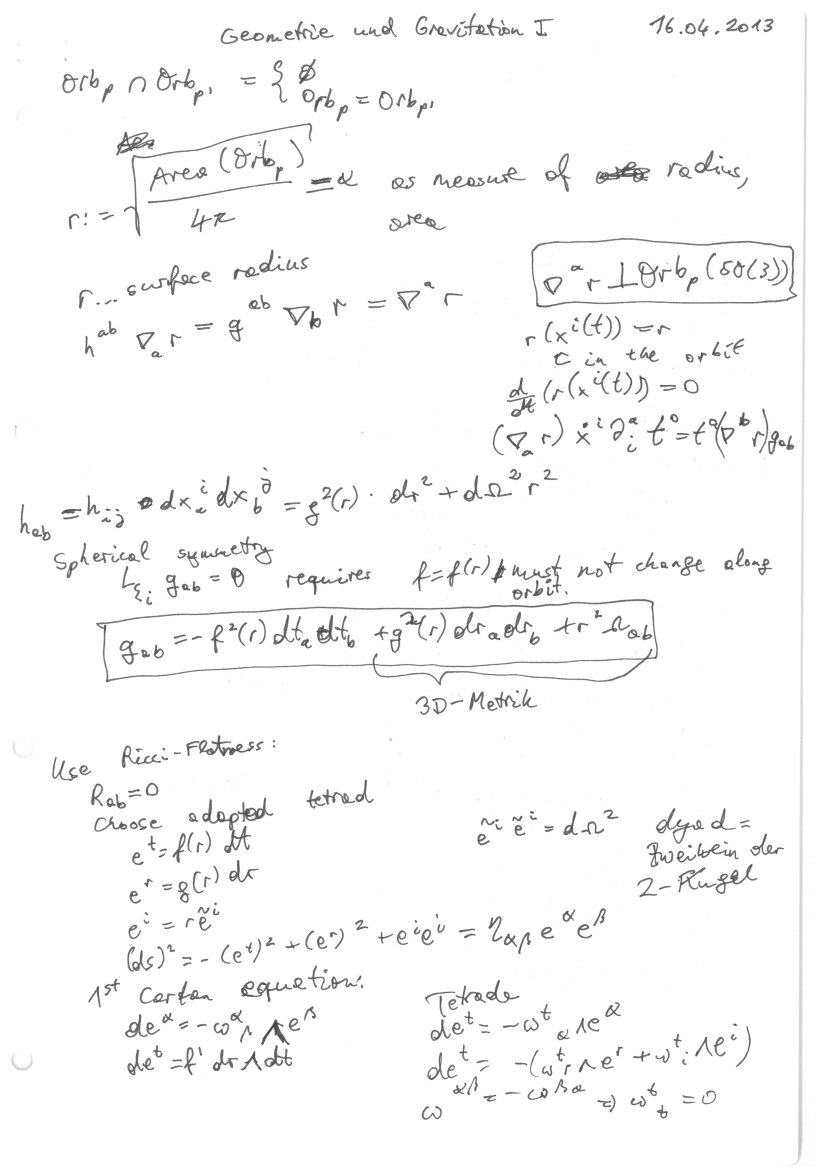 Geometrie und Gravitation I 16.04.2013
Orb_p ∩ Orb_p' = { ∅
Orb_p = Orb_p'
r := √(Area(Orb_p) / 4π) = α as measure of radius,
area
r... surface radius
h^{ab} ∇_a r = g^{ab} ∇_b r = ∇^a r
∇^a r ⊥ Orb_p (SO(3))
r(x^i(t)) = r
t in the orbit
d/dt (r(x^i(t))) = 0
(∇_a r) ẋ^i ∂_i^a t^a = t^a (∇^b r) g_{ab}
h_{ab} = h_{ij} dx_a^i dx_b^j = g²(r) · dr² + dΩ² r²
Spherical symmetry
L_{ξ_i} g_{ab} = 0 requires f = f(r) must not change along
orbit.
g_{ab} = -f²(r) dt_a dt_b + g²(r) dr_a dr_b + r² Ω_{ab}
3D-Metrik
Use Ricci-Flatness:
R_{ab} = 0
Choose adapted tetrad
e^t = f(r) dt
e^r = g(r) dr
e^i = r ẽ^i
ẽ^i ẽ^i = dΩ² dyad =
Zweibein der
2-Kugel
(ds)² = -(e^t)² + (e^r)² + e^i e^i = η_{αβ} e^α e^β
1st Cartan equation:
de^α = -ω^α_β ∧ e^β
de^t = f' dr ∧ dt
Tetrade
de^t = -ω^t_α ∧ e^α
de^t = -(ω^t_r ∧ e^r + ω^t_i ∧ e^i)
ω^{αβ} = -ω^{βα} ⇒ ω^t_t = 0